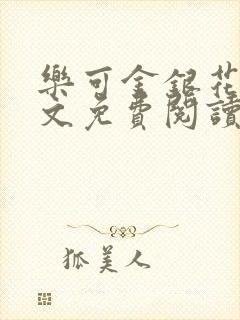 樂可金銀花
文免費閱讀
狐美人